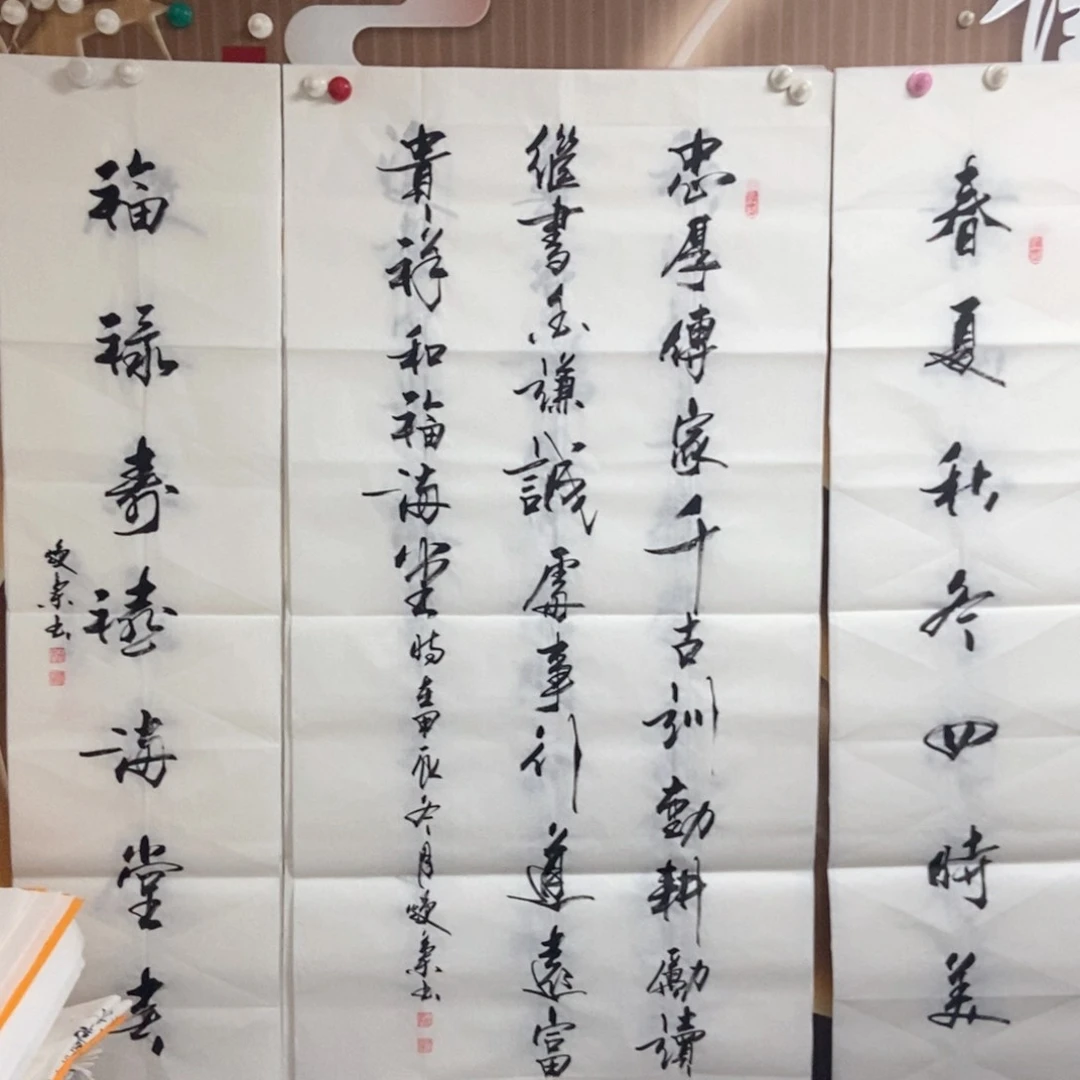 春夏秋冬四時美
忠厚傳家千古訓勤耕勵讀
繼書香謙誠處事行道遠富
貴祥和福滿堂時在甲辰冬月書
福祿壽禧滿堂
書